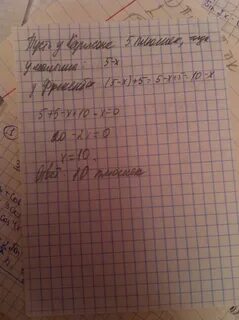 Пусть у Карлсона 5 плюшек, тогда
у малыша: 5-x
у Фрекенбок (5-x)+5=5-x+5=10-x
5+5-x+10-x=0
20-2x=0
x=10
Ответ 10 плюшек